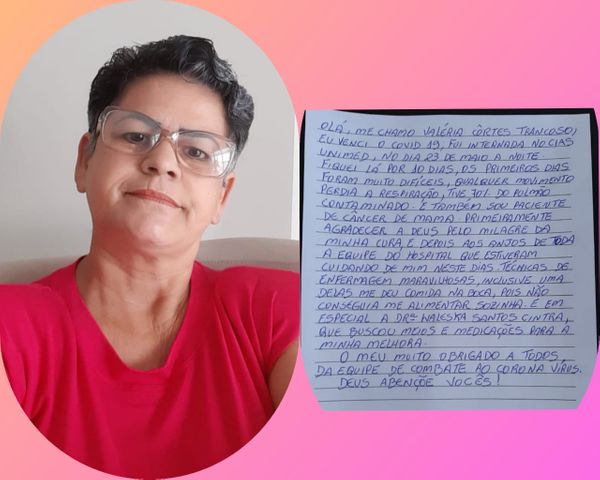 OLÁ, ME CHAMO VALÉRIA CÔRTES TRANCOSO,
EU VENCI O COVID 19, FUI INTERNADA NO CIAS
UNIMED, NO DIA 23 DE MAIO A NOITE.
FIQUEI LÁ POR 10 DIAS, OS PRIMEIROS DIAS
FORAM MUITO DIFÍCEIS, QUALQUER MOVIMENTO
PERDIA A RESPIRAÇÃO, TIVE 70% DO PULMÃO
CONTAMINADO. E TAMBÉM SOU PACIENTE
DE CÂNCER DE MAMA. PRIMEIRAMENTE
AGRADECER A DEUS PELO MILAGRE DA
MINHA CURA, E DEPOIS AOS ANJOS DE TODA
A EQUIPE DO HOSPITAL QUE ESTIVERAM
CUIDANDO DE MIM NESTE DIAS. TÉCNICAS DE
ENFERMAGEM MARAVILHOSAS, INCLUSIVE UMA
DELAS ME DEU COMIDA NA BOCA, POIS NÃO
CONSEGUIA ME ALIMENTAR SOZINHA. E EM
ESPECIAL A DRª WALESKA SANTOS CINTRA,
QUE BUSCOU MEIOS E MEDICAÇÕES PARA A
MINHA MELHORA.
O MEU MUITO OBRIGADO A TODOS,
DA EQUIPE DE COMBATE AO CORONA VÍRUS.
DEUS ABENÇÕE VOCÊS!